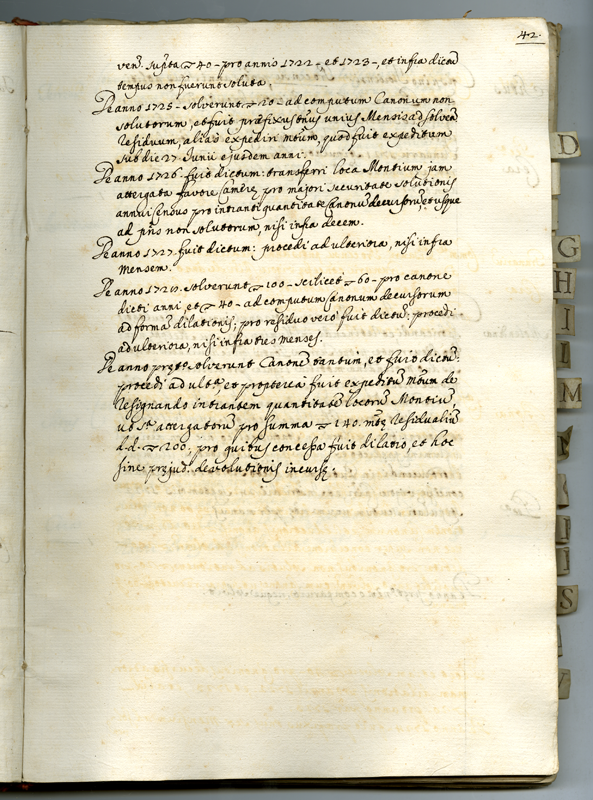 42.
ven: supta ▽ 40 – pro annis 1722 – et 1723 –, et infra dictū
tempus non fuerunt soluta.
De anno 1725 – solverunt ▽ 20 – ad computum Canonum non
solutorum, et fuit præfixus terminus unius Mensis ad solven
Residuum, alias expediri mtum, quod fuit expeditum
sub die 27 Junii ejusdem anni.
De anno 1726 fuit dictum: transferri loca Montium jam
attergata favore Cameræ pro majori securitate solutionis
annui census pro intranti quantitate Canonū decursorū, et usque
ad pñs non solutorum, nisi infra decem.
De anno 1727 fuit dictum: procedi ad ulteriora, nisi infra
Mensem.
De anno solverunt ▽ 100 – scilicet ▽ 60 – pro canone
dicti anni, et ▽ 40 – ad computum Canonum decursorum
ad formā dilationis; pro residuo vero fuit dictū: procedi
ad ulteriora, nisi infra tres menses.
De anno solverunt Canonē tantum, et fuit dictū:
procedi ad ult., et propterea fuit expeditū mtum de
resignando intrantem quantitatē locorū Montiū,
ut sa attergatorū pro summa ▽ 140. mtæ residualiū
d.d. ▽ 200: pro quibus concessa fuit dilatio, et hoc
sine præjud: devolutionis incursæ.
D
G
H
I
L
M
S